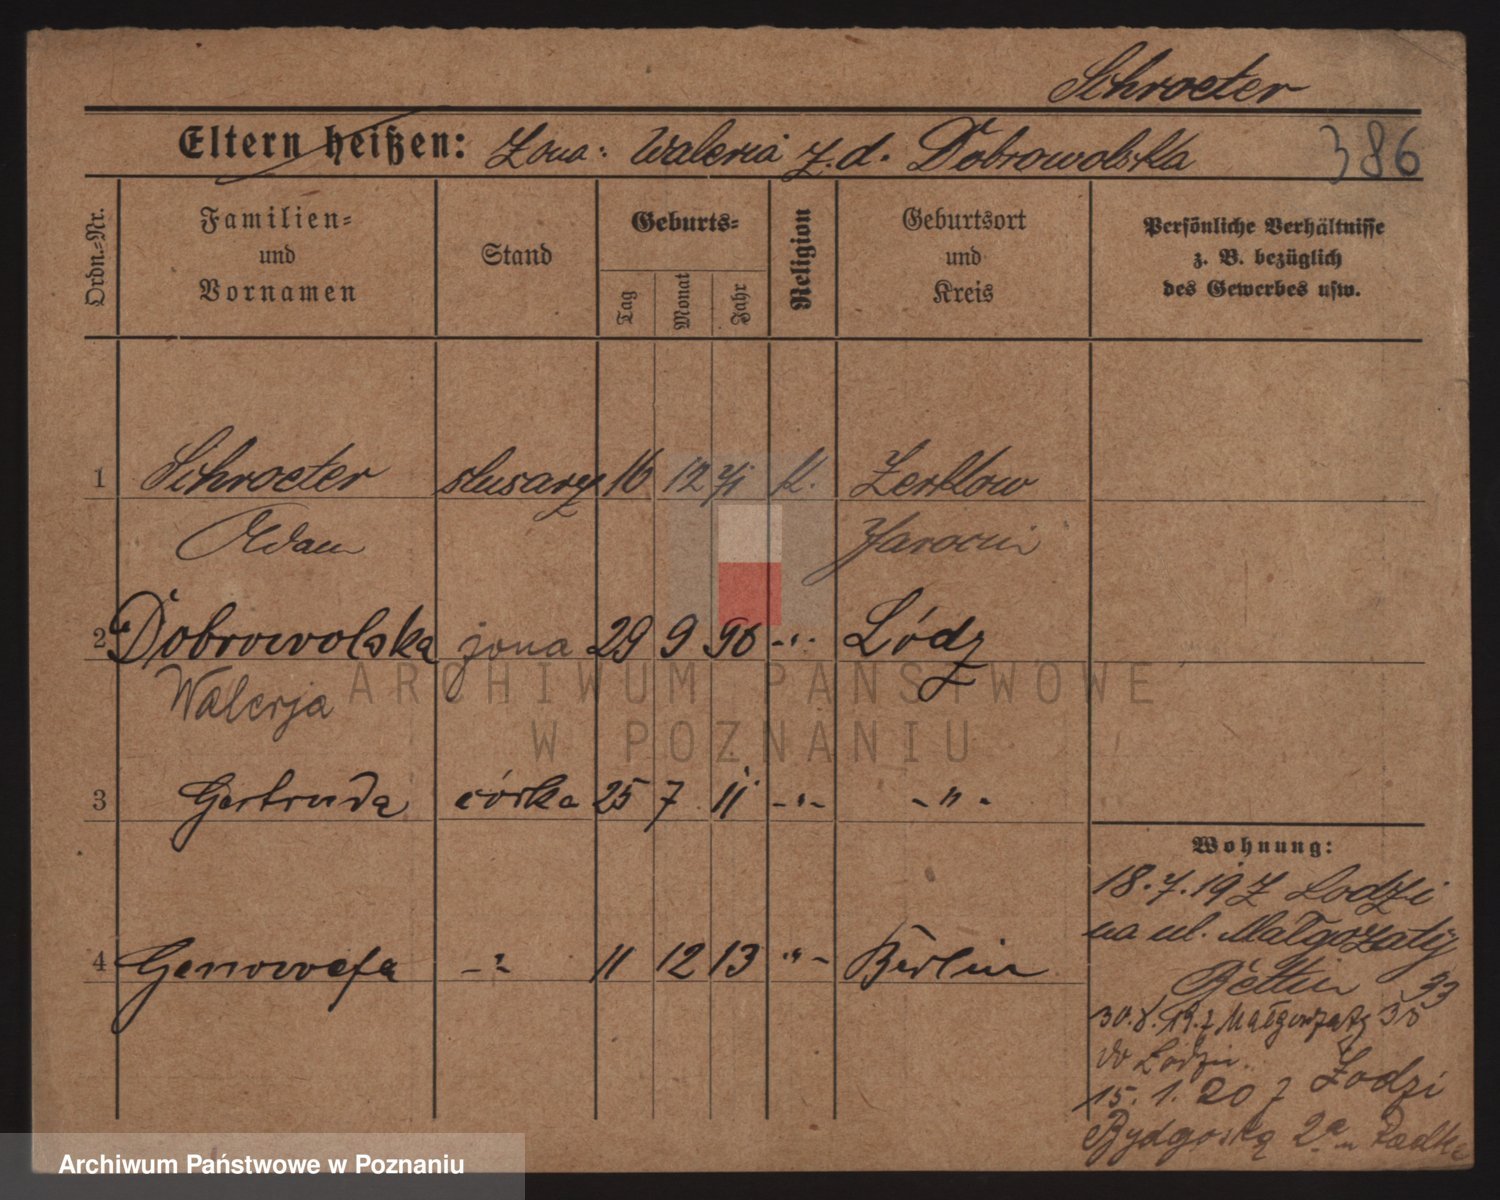 Schroeter
Eltern heißen: Żona: Waleria z. d. Dobrowolska 386
Ordn.-Nr.
Familien-
und
Vornamen
Stand
Geburts-
Tag
Monat
Jahr
Religion
Geburtsort
und
Kreis
Persönliche Verhältnisse
z. B. bezüglich
des Gewerbes usw.
1 Schroeter slusarz 16 12 71 k. Zerkow
Adam Jarocin
2 Dobrowolska żona 29 9 90 -"- Łódz
Walerja
ARCHIWUM PAŃSTWOWE
W POZNANIU
3 Gertruda córka 25 7 11 -"- -"-
Wohnung:
18.7.19 Z Lodzi
na ul. Małgorzaty
33
4 Genowefa -"- 11 12 13 "- Berlin
30.8.19. z Małgorzaty 35
do Łodzi
15.1.20 z Łodzi
Bydgoską 2a
Archiwum Państwowe w Poznaniu